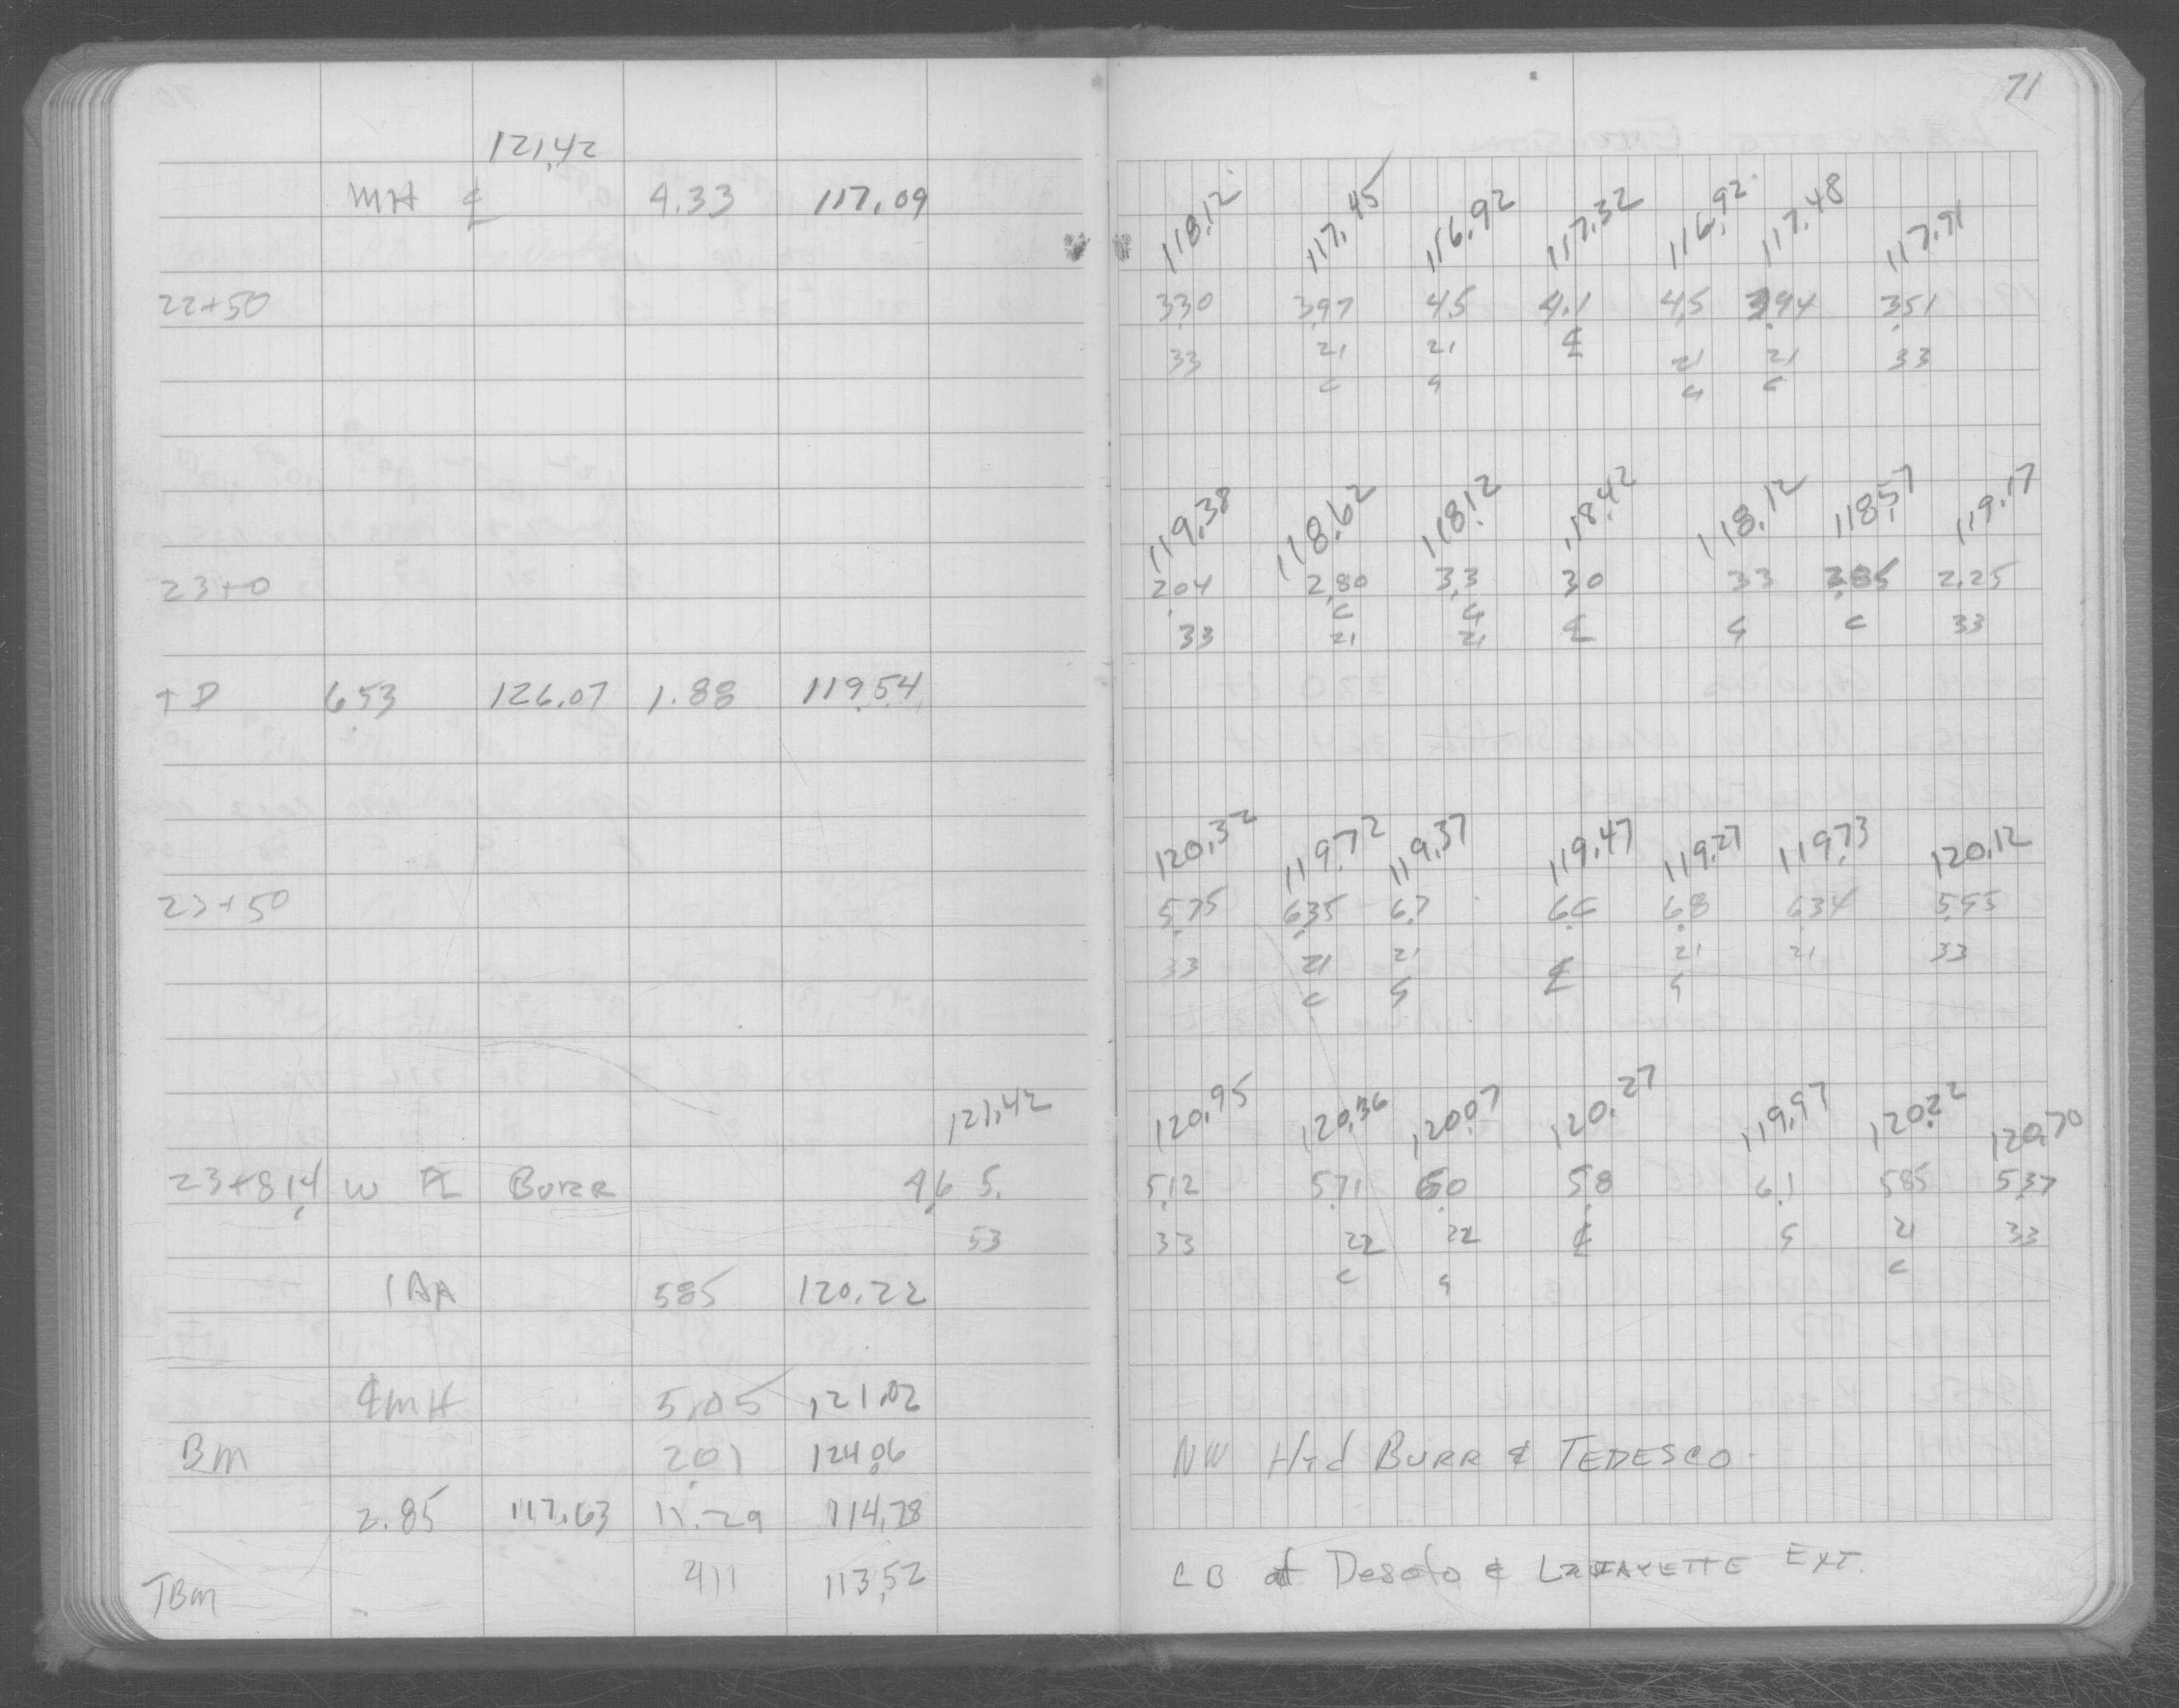 71
121.42
MH ℄ 4.33 117.09
118.12 117.45 116.92 117.32 116.92 117.48 117.91
22+50 3.30 3.97 4.5 4.1 4.5 3.94 3.51
33 21 21 ℄ 21 21 33
C G G C
119.38 118.62 118.12 118.42 118.12 118.57 119.17
23+0 2.04 2.80 3.3 30 33 2.85 2.25
C G
33 21 21 ℄ G C 33
TP 6.53 126.07 1.88 119.54
120.32 119.72 119.37 119.47 119.27 119.73 120.12
23+50 5.75 6.35 6.7 6.6 6.8 6.34 5.95
33 21 21 ℄ 21 21 33
C G G
121.42 120.95 120.36 120.07 120.27 119.97 120.22 120.70
23+81.4 W PL BURR 4.6 5. 5.12 5.71 6.0 5.8 6.1 5.85 5.37
53 33 22 22 ℄ G 21 33
C G C
585 120.22
℄ MH 5.05 121.02
BM 2.01 124.06 NW Hyd BURR & TEDESCO
2.85 117.63 11.29 114.78
TBM 4.11 113.52 CB at Desoto & LAFAYETTE EXT.